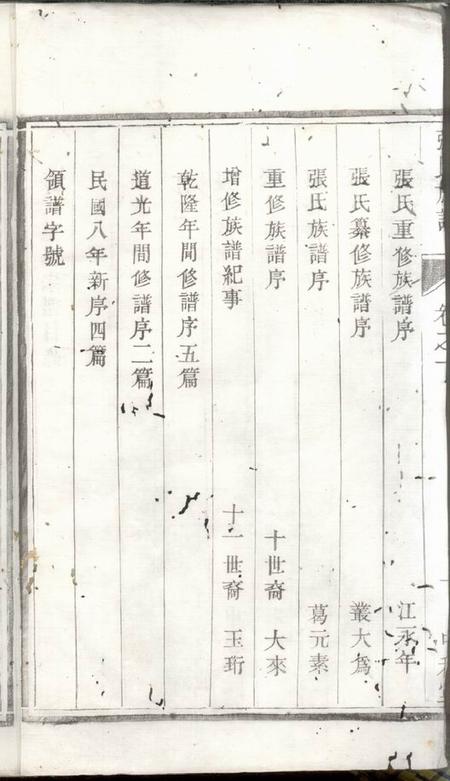 張氏重修族譜序 江永年
張氏纂修族譜序 叢大為
張氏族譜序 葛元素
重修族譜序 十世裔 大來
增修族譜紀事 十一世裔 玉珩
乾隆年間修譜序五篇
道光年間修譜序二篇
民國八年新序四篇
領譜字號